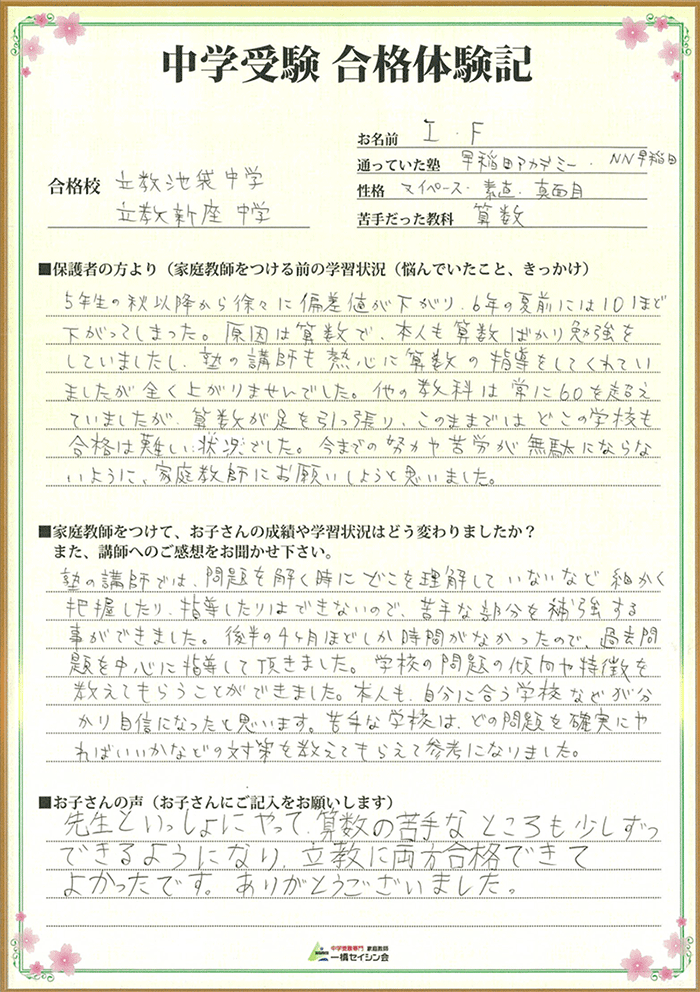 中学受験 合格体験記
お名前 I・F
通っていた塾 早稲田アカデミー・NN早稲田
合格校 立教池袋中学
性格 マイペース・素直・真面目
立教新座中学
苦手だった教科 算数
■保護者の方より（家庭教師をつける前の学習状況（悩んでいたこと、きっかけ）
5年生の秋以降から徐々に偏差値が下がり、6年の夏前には10ほど
下がってしまった。原因は算数で、本人も算数ばかり勉強を
していましたし、塾の講師も熱心に算数の指導をしてくれてい
ましたが全く上がりませんでした。他の教科は常に60を超え
ていましたが、算数が足を引っ張り、このままではどこの学校も
合格は難しい状況でした。今までの努力や苦労が無駄にならな
いように、家庭教師にお願いしようと思いました。
■家庭教師をつけて、お子さんの成績や学習状況はどう変わりましたか？
また、講師へのご感想をお聞かせ下さい。
塾の講師では、問題を解く時にどこを理解していないなど細かく
把握したり、指導したりはできないので、苦手な部分を補強する
事ができました。後半の4ヶ月ほどしか時間がなかったので、過去問
題を中心に指導して頂きました。学校の問題の傾向や特徴を
教えてもらうことができました。本人も、自分に合う学校などが分
かり自信になったと思います。苦手な学校は、どの問題を確実にや
ればいいかなどの対策を教えてもらえて参考になりました。
■お子さんの声（お子さんにご記入をお願いします）
先生といっしょにやって、算数の苦手なところも少しずつ
できるようになり、立教に両方合格できて
よかったです。ありがとうございました。
中学受験専門 家庭教師
一橋セイシン会